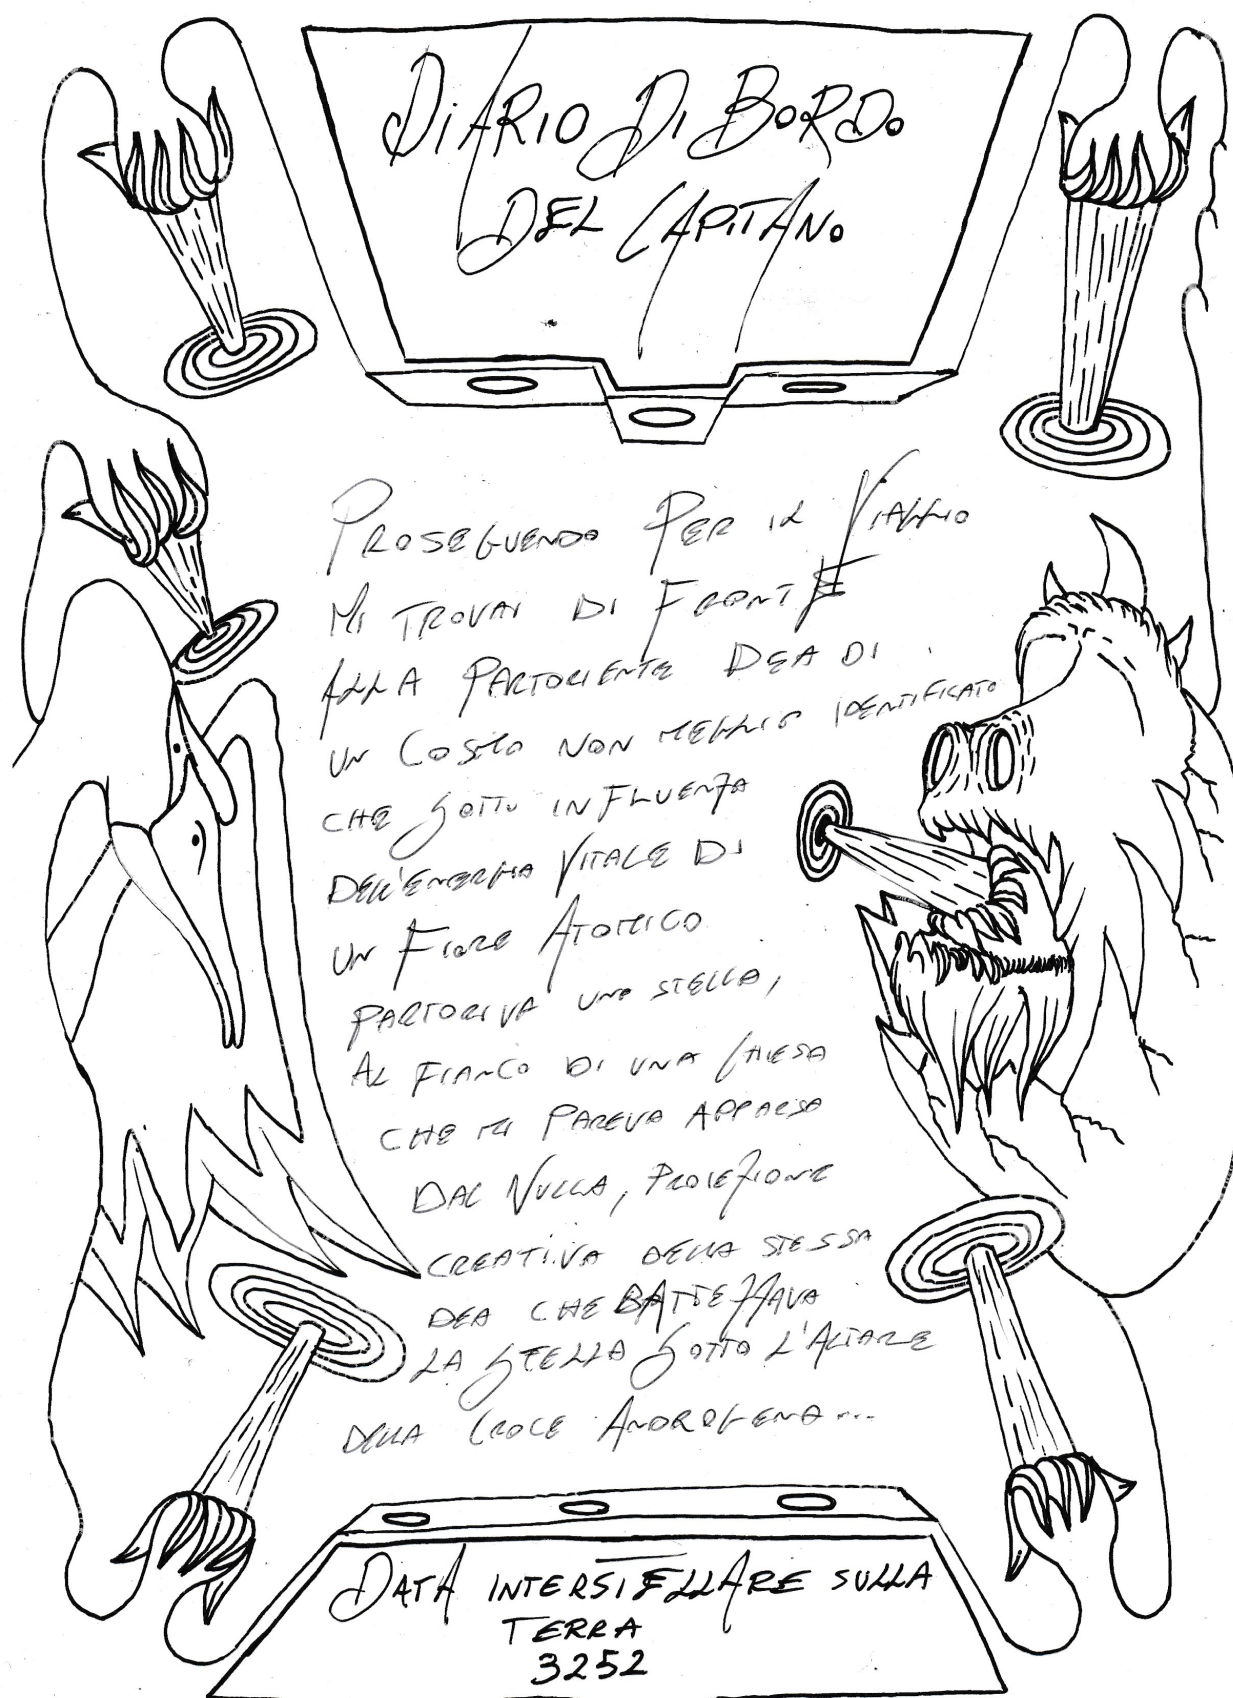 DiARIO Di BORDO
DEL CAPiTANO
PROSEGUENDO PER IL VIAGGIO
MI TROVAI DI FRONTE
ALLA PARTORIENTE DEA DI
UN COSMO NON MEGLIO IDENTIFICATO
CHE SOTTO INFLUENZA
DELL'ENERGIA VITALE DI
UN FIORE ATOMICO
PARTORIVA UNA STELLA,
AL FIANCO DI UNA CHIESA
CHE MI PAREVA APPARSA
DAL NULLA, PROIEZIONE
CREATIVA DELLA STESSA
DEA CHE BATTEZZAVA
LA STELLA SOTTO L'ALTARE
DELLA CROCE ANDROGENA...
DATA INTERSTELLARE SULLA
TERRA
3252